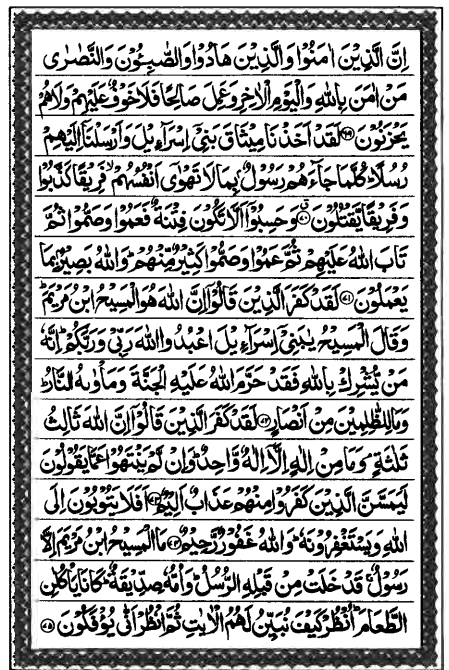 اِنَّ الَّذِيۡنَ اٰمَنُوۡا وَالَّذِيۡنَ هَادُوۡا وَالصّٰبِـُٔوۡنَ وَالنَّصٰرٰى
مَنۡ اٰمَنَ بِاللّٰهِ وَالۡيَوۡمِ الۡاٰخِرِ وَعَمِلَ صَالِحًا فَلَا خَوۡفٌ عَلَيۡهِمۡ وَلَا هُمۡ
يَحۡزَنُوۡنَ ﴿۶۹﴾ لَقَدۡ اَخَذۡنَا مِيۡثَاقَ بَنِىۡۤ اِسۡرَآءِيۡلَ وَاَرۡسَلۡنَاۤ اِلَيۡهِمۡ
رُسُلًا ؕ كُلَّمَا جَآءَهُمۡ رَسُوۡلٌۢ بِمَا لَا تَهۡوٰٓى اَنۡفُسُهُمۡ ۙ فَرِيۡقًا كَذَّبُوۡا
وَفَرِيۡقًا يَّقۡتُلُوۡنَ ﴿۷۰﴾ وَحَسِبُوۡۤا اَلَّا تَكُوۡنَ فِتۡنَةٌ فَعَمُوۡا وَصَمُّوۡا ثُمَّ
تَابَ اللّٰهُ عَلَيۡهِمۡ ثُمَّ عَمُوۡا وَصَمُّوۡا كَثِيۡرٌ مِّنۡهُمۡ ؕ وَاللّٰهُ بَصِيۡرٌۢ بِمَا
يَعۡمَلُوۡنَ ﴿۷۱﴾ لَقَدۡ كَفَرَ الَّذِيۡنَ قَالُوۡۤا اِنَّ اللّٰهَ هُوَ الۡمَسِيۡحُ ابۡنُ مَرۡيَمَ ؕ
وَقَالَ الۡمَسِيۡحُ يٰبَنِىۡۤ اِسۡرَآءِيۡلَ اعۡبُدُوا اللّٰهَ رَبِّىۡ وَرَبَّكُمۡ ؕ اِنَّهٗ
مَنۡ يُّشۡرِكۡ بِاللّٰهِ فَقَدۡ حَرَّمَ اللّٰهُ عَلَيۡهِ الۡجَنَّةَ وَمَاۡوٰٮهُ النَّارُ ؕ
وَمَا لِلظّٰلِمِيۡنَ مِنۡ اَنۡصَارٍ ﴿۷۲﴾ لَقَدۡ كَفَرَ الَّذِيۡنَ قَالُوۡۤا اِنَّ اللّٰهَ ثَالِثُ
ثَلٰثَةٍ ۘ وَمَا مِنۡ اِلٰهٍ اِلَّاۤ اِلٰهٌ وَّاحِدٌ ؕ وَاِنۡ لَّمۡ يَنۡتَهُوۡا عَمَّا يَقُوۡلُوۡنَ
لَيَمَسَّنَّ الَّذِيۡنَ كَفَرُوۡا مِنۡهُمۡ عَذَابٌ اَلِيۡمٌ ﴿۷۳﴾ اَفَلَا يَتُوۡبُوۡنَ اِلَى
اللّٰهِ وَيَسۡتَغۡفِرُوۡنَهٗ ؕ وَاللّٰهُ غَفُوۡرٌ رَّحِيۡمٌ ﴿۷۴﴾ مَا الۡمَسِيۡحُ ابۡنُ مَرۡيَمَ اِلَّا
رَسُوۡلٌ ۚ قَدۡ خَلَتۡ مِنۡ قَبۡلِهِ الرُّسُلُ ؕ وَاُمُّهٗ صِدِّيۡقَةٌ ؕ كَانَا يَاۡكُلٰنِ
الطَّعَامَ ؕ اُنْظُرۡ كَيۡفَ نُبَيِّنُ لَهُمُ الۡاٰيٰتِ ثُمَّ انْظُرۡ اَنّٰى يُؤۡفَكُوۡنَ ﴿۷۵﴾